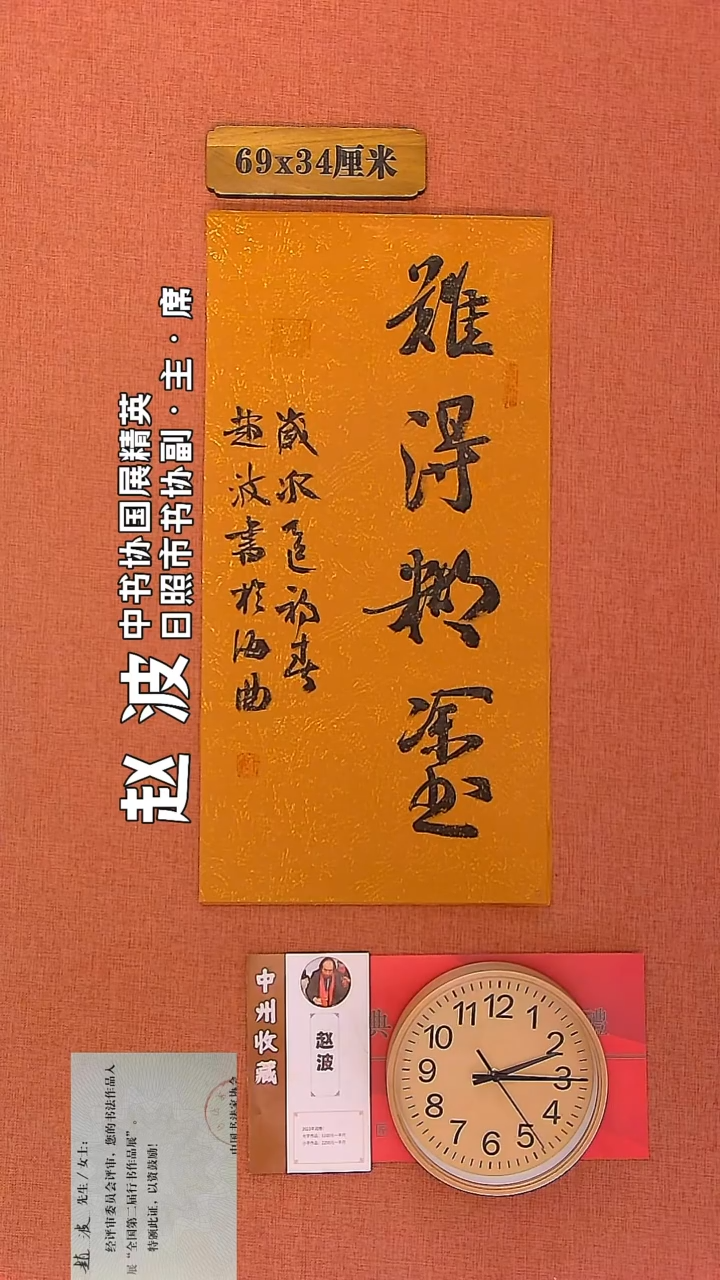 69x34厘米
難得糊塗
歲次乙巳初春
趙波書於海曲
赵波
中书协国展精英
日照市书协副·主·席
中
藏
赵波
典
禮
12
1
2
3
4
5
6
7
8
9
10
11
趙波 先生/女士:
经评审委员会评审,您的书法作品入
展“全国第二届行书作品展”。
特颁此证,以资鼓励!
中国书法家协会